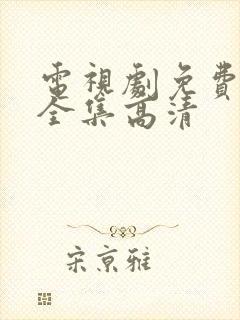 電視劇免費
全集高清
宋京雅